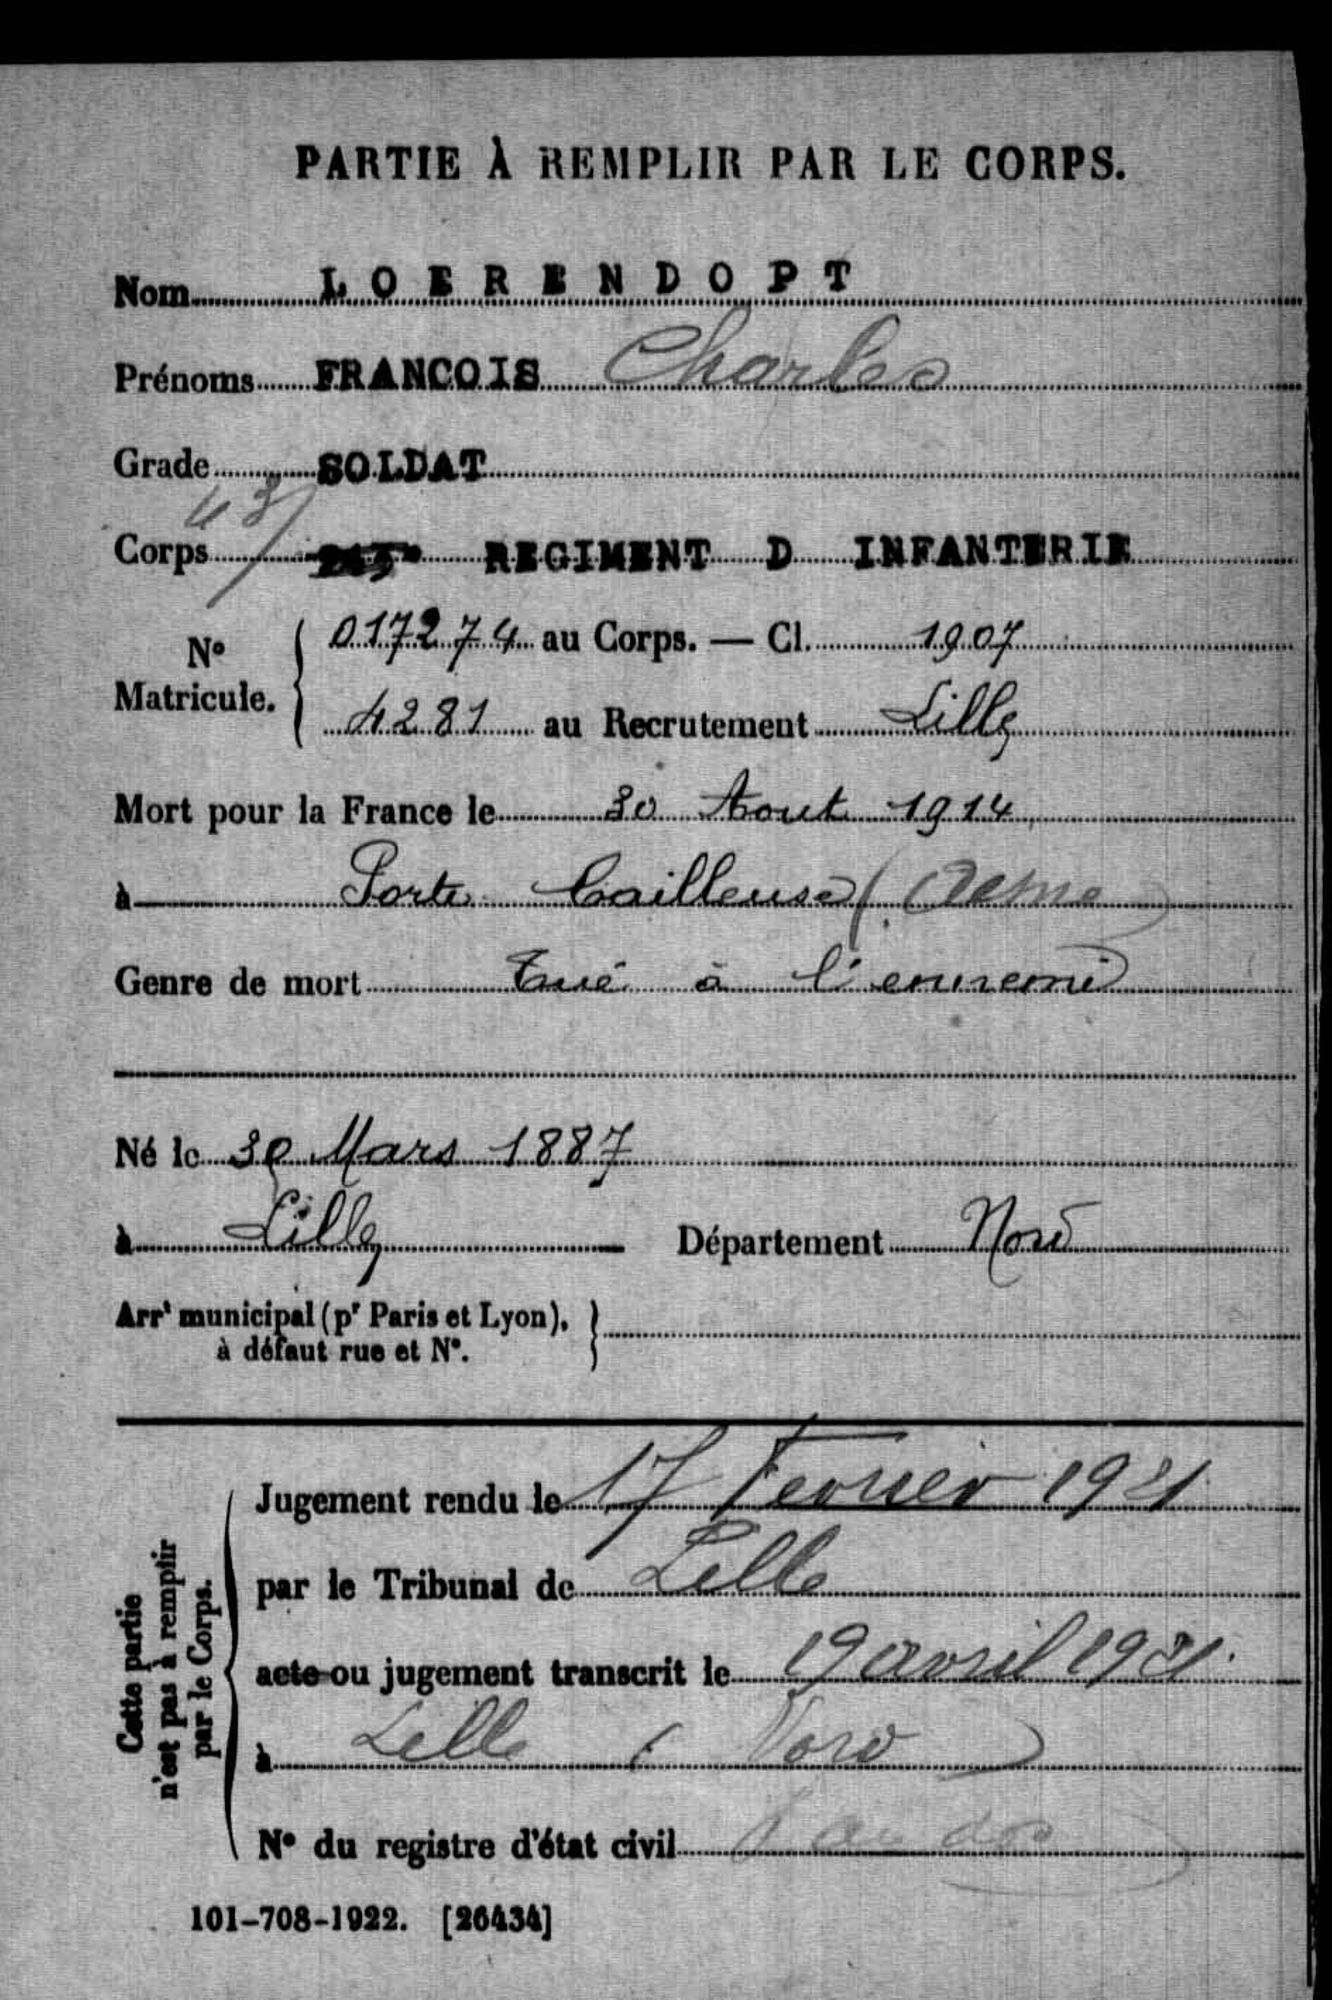 PARTIE À REMPLIR PAR LE CORPS.
Nom LOERENDOPT
Prénoms FRANCOIS Charles
Grade SOLDAT
43
Corps REGIMENT D INFANTERIE
N° Matricule. { 017274 au Corps. — Cl. 1907
4281 au Recrutement Lille
Mort pour la France le 30 Aout 1914
à Porte Cailleuse (Aisne)
Genre de mort Tué à l'ennemi
Né le 30 Mars 1887
à Lille Département Nord
Arrt municipal (pr Paris et Lyon), à défaut rue et N°. }
Cette partie n'est pas à remplir par le Corps.
Jugement rendu le 17 Fevrier 1921
par le Tribunal de Lille
acte ou jugement transcrit le 19 avril 1921.
à Lille (Nord)
N° du registre d'état civil au dos
101-708-1922. [26434]